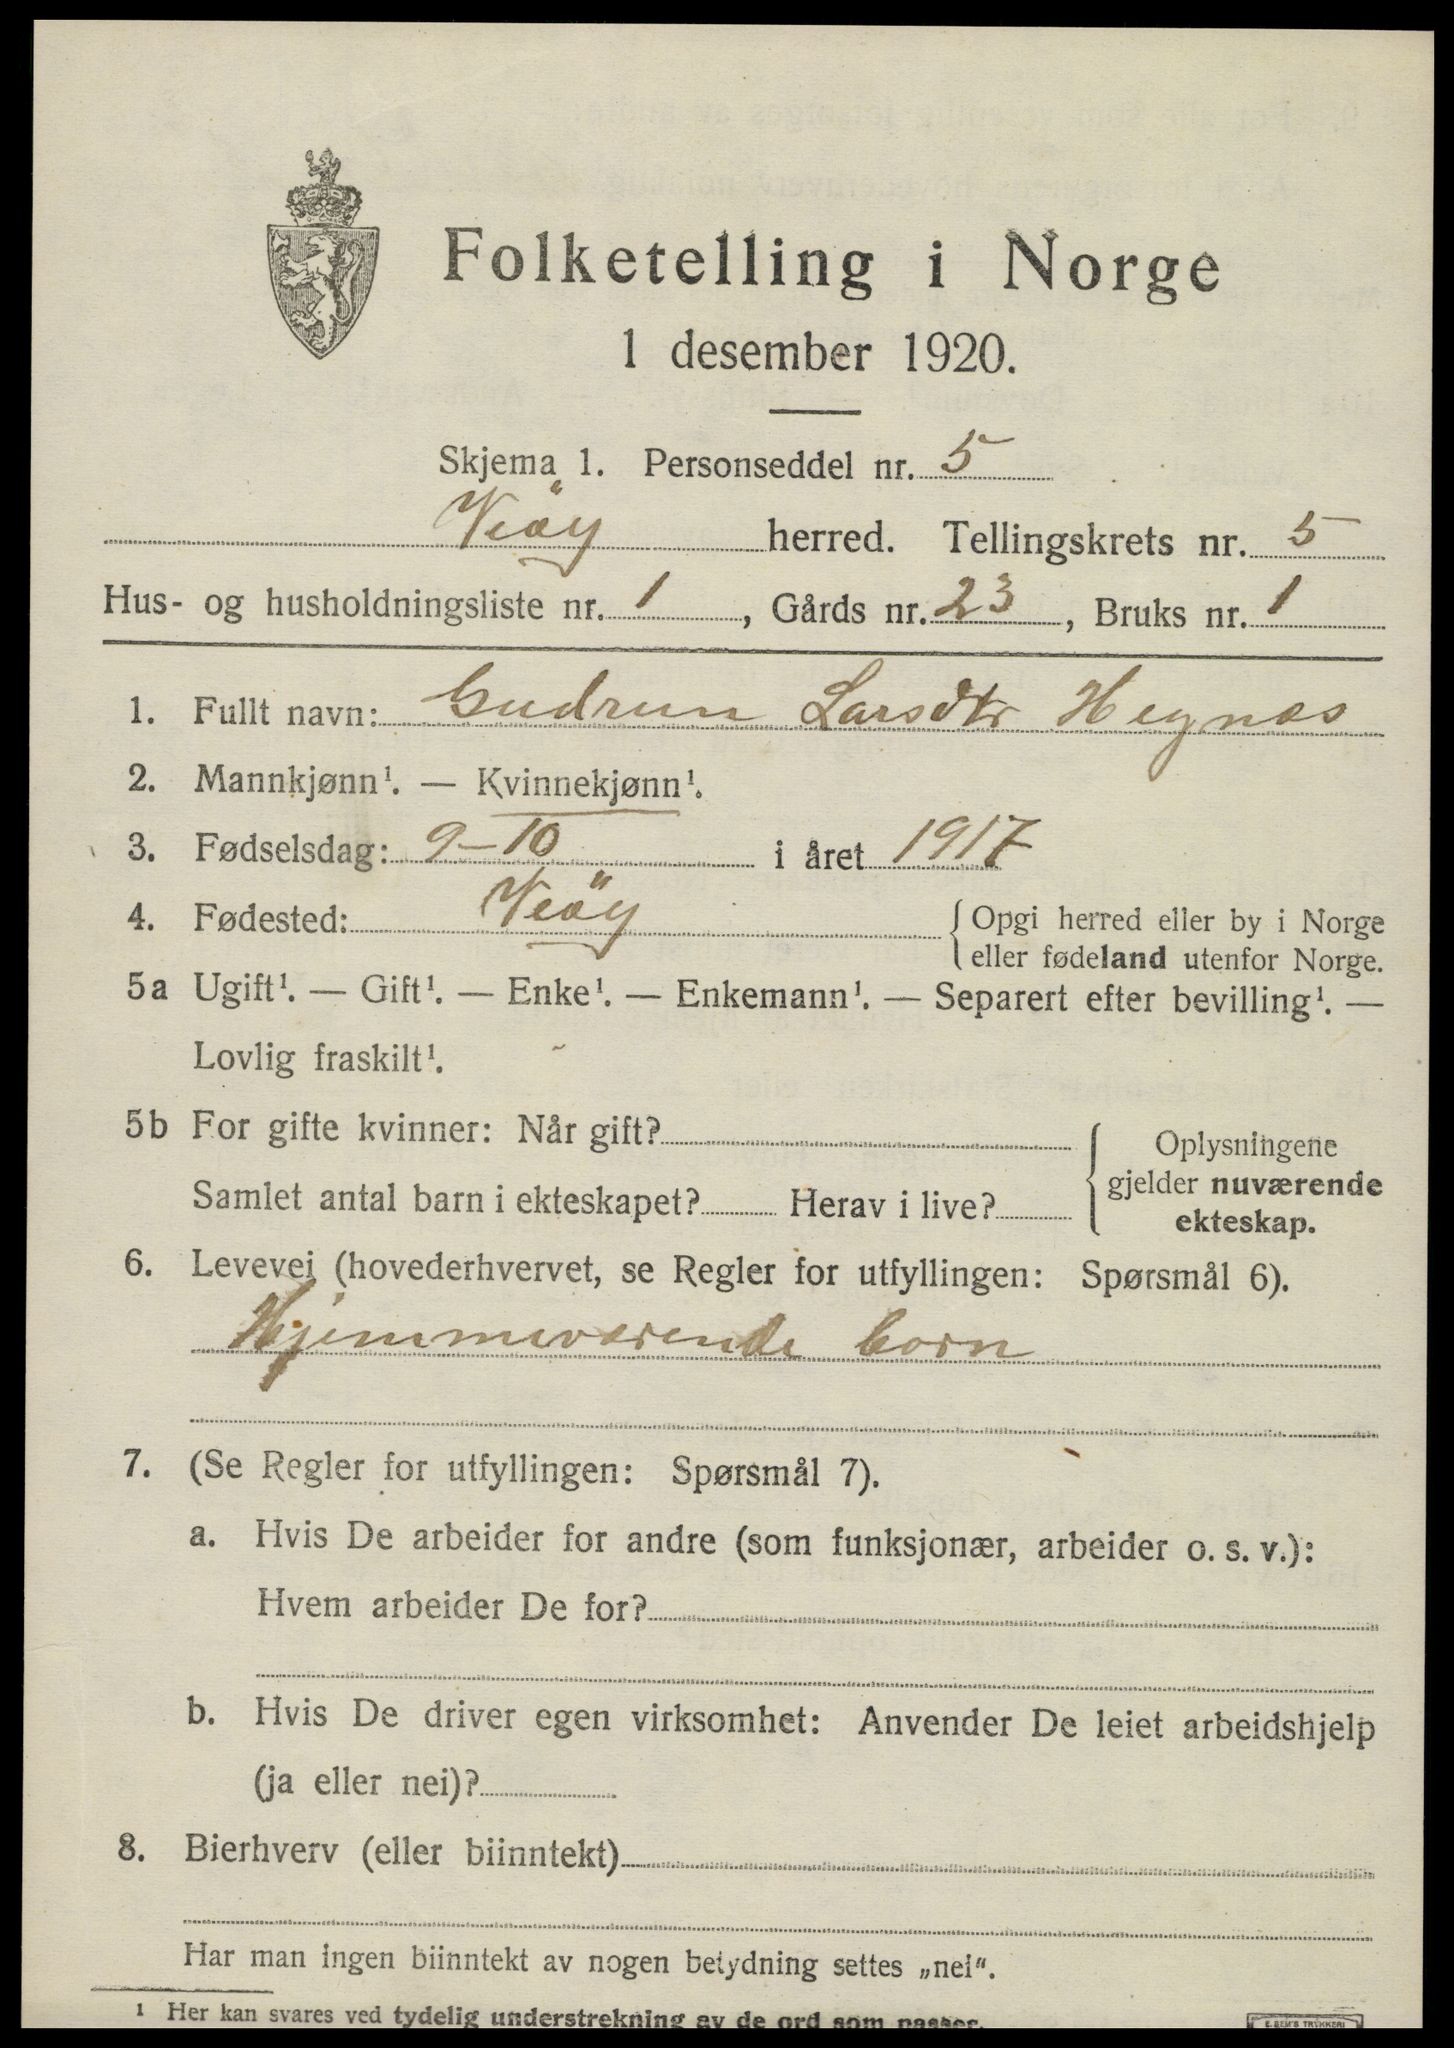 Folketelling i Norge
1 desember 1920.
Skjema 1. Personseddel nr. 5
Veöy herred. Tellingskrets nr. 5
Hus- og husholdningsliste nr. 1, Gårds nr. 23, Bruks nr. 1
1. Fullt navn: Gudrun Larsdtr Hegnæs
2. Mannkjønn¹. — Kvinnekjønn¹.
3. Fødselsdag: 9-10 i året 1917
4. Fødested: Veöy { Opgi herred eller by i Norge
eller fødeland utenfor Norge.
5a Ugift¹. — Gift¹. — Enke¹. — Enkemann¹. — Separert efter bevilling¹. —
Lovlig fraskilt¹.
5b For gifte kvinner: Når gift?
Samlet antal barn i ekteskapet? Herav i live?
Oplysningene
gjelder nuværende
ekteskap.
6. Levevei (hovederhvervet, se Regler for utfyllingen: Spørsmål 6).
Hjemmeværende born
7. (Se Regler for utfyllingen: Spørsmål 7).
a. Hvis De arbeider for andre (som funksjonær, arbeider o. s. v.):
Hvem arbeider De for?
b. Hvis De driver egen virksomhet: Anvender De leiet arbeidshjelp
(ja eller nei)?
8. Bierhverv (eller biinntekt)
Har man ingen biinntekt av nogen betydning settes „nei“.
1 Her kan svares ved tydelig understrekning av de ord som passer.
E. SEM'S TRYKKERI